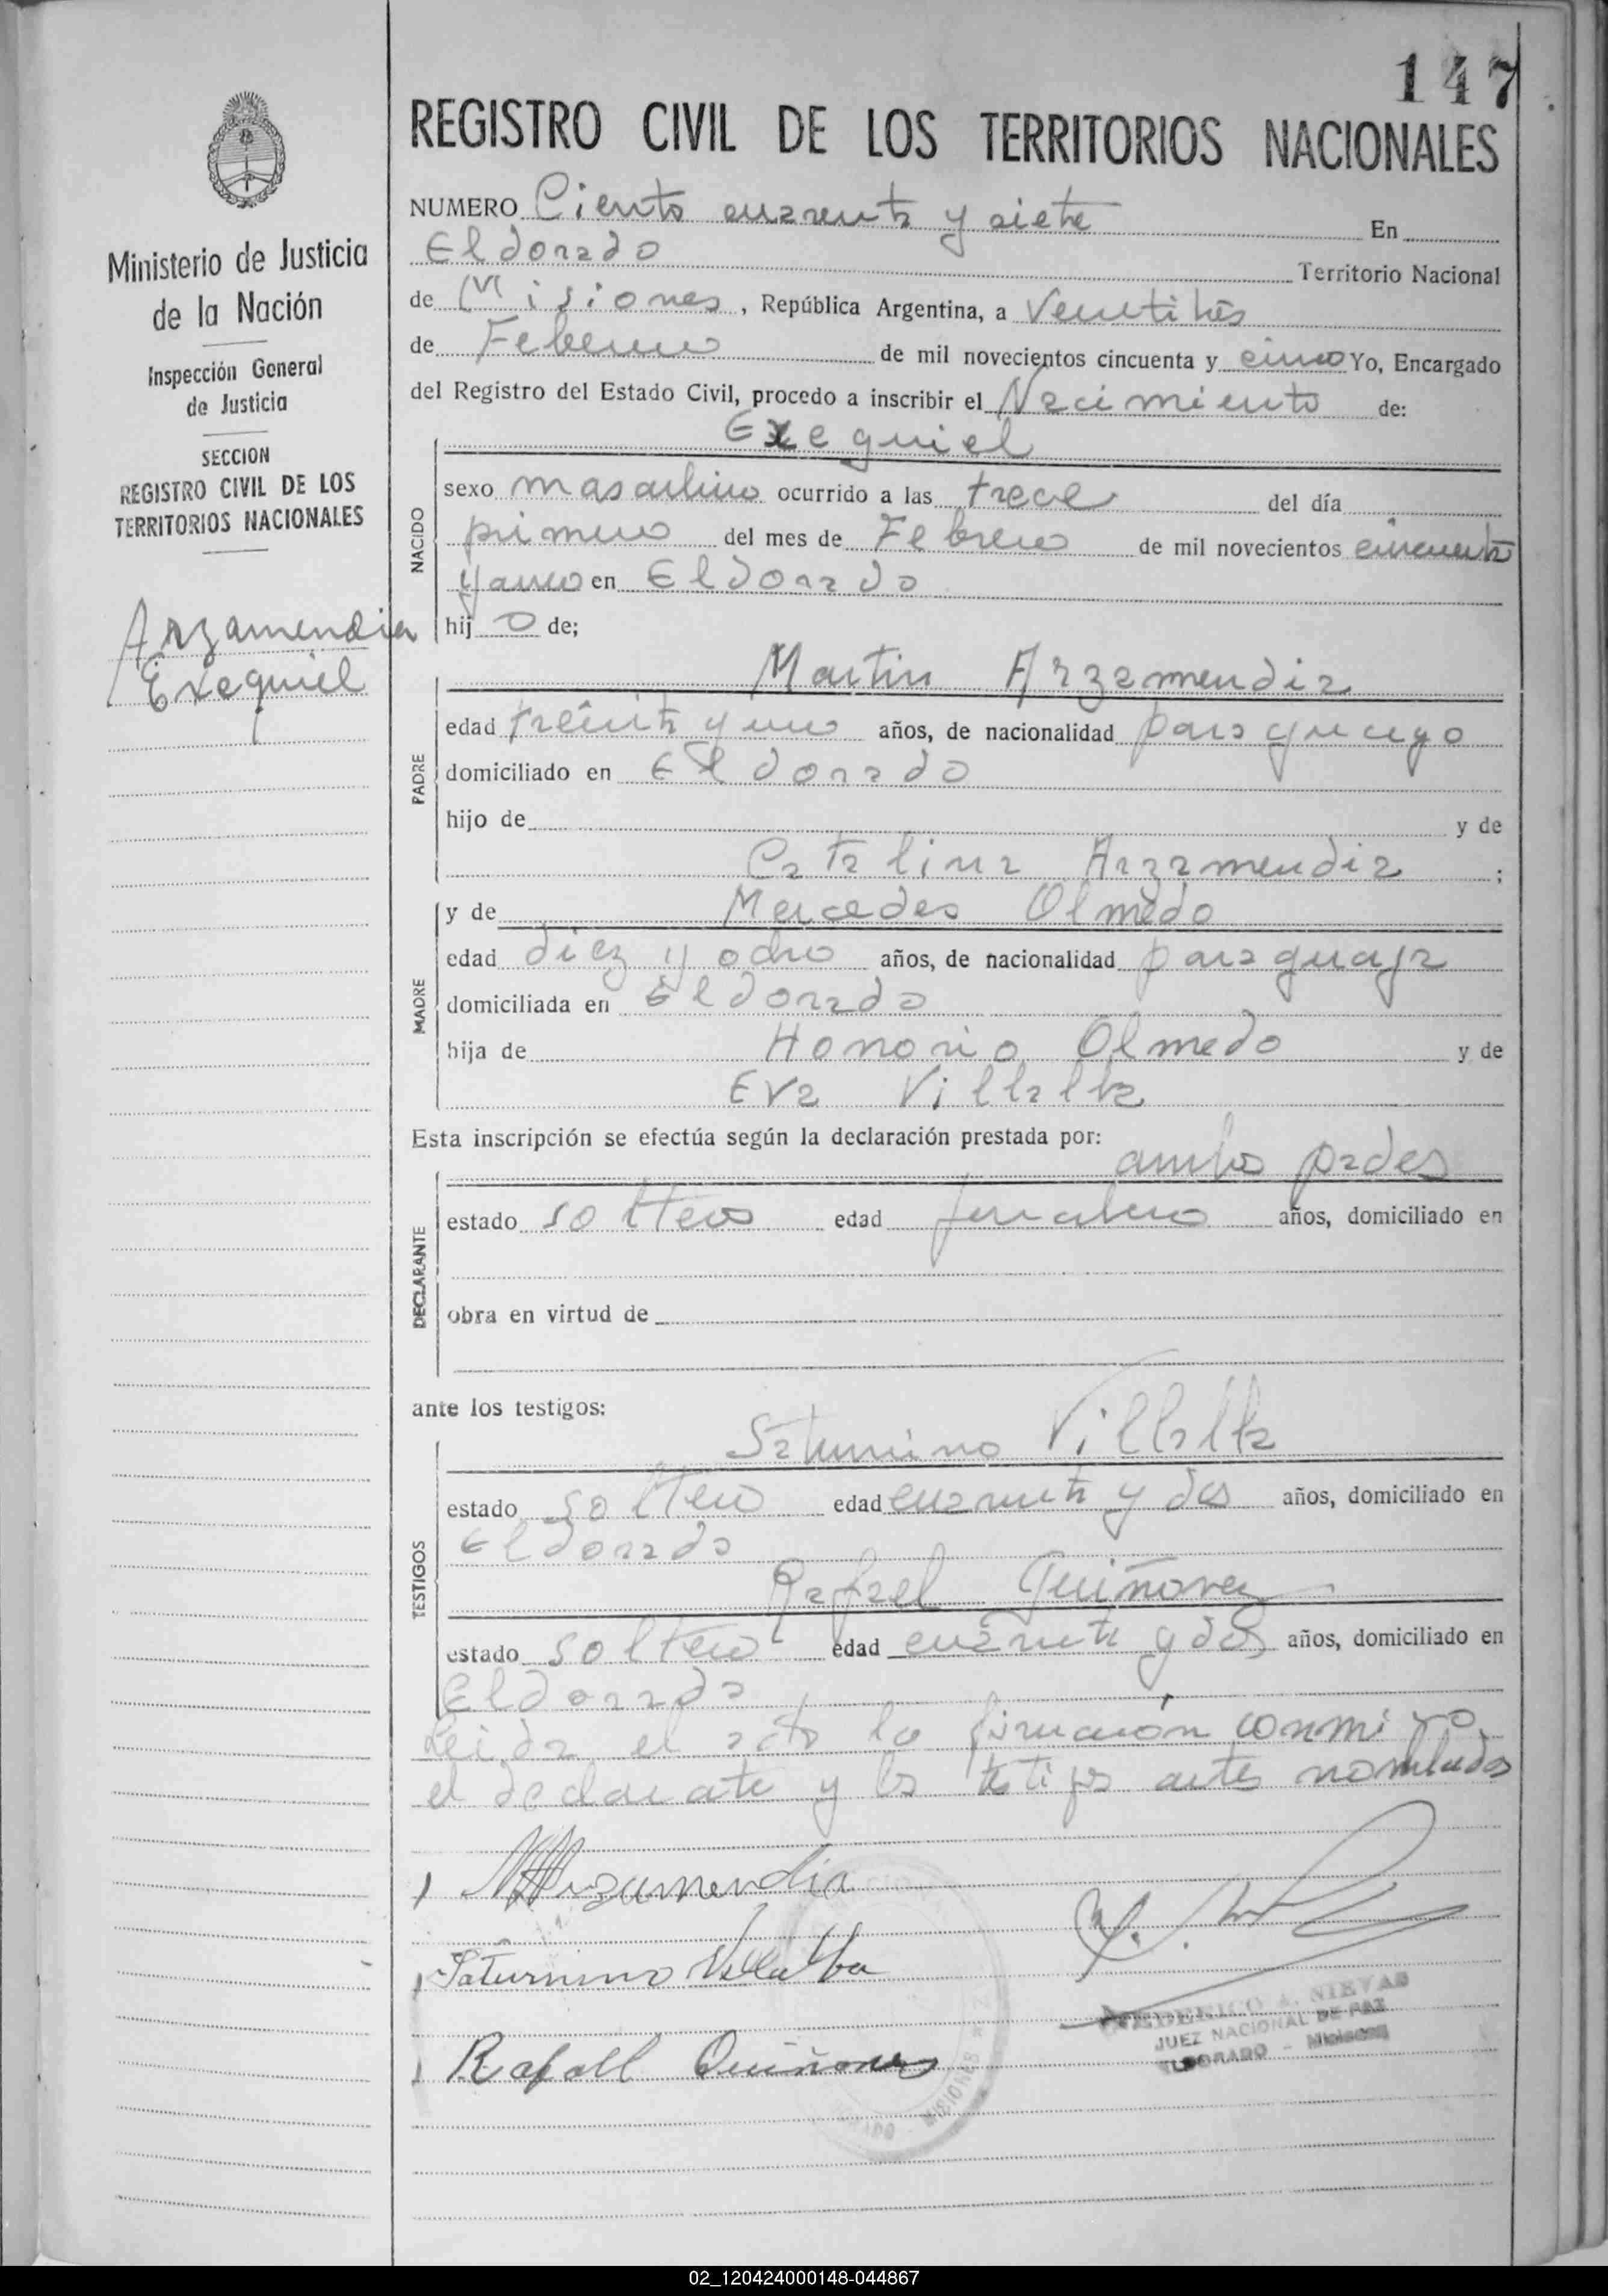 147
REGISTRO CIVIL DE LOS TERRITORIOS NACIONALES
Ministerio de Justicia
de la Nación
Inspección General
de Justicia
SECCION
REGISTRO CIVIL DE LOS
TERRITORIOS NACIONALES
Arzamendia
Exequiel
NUMERO Ciento cuarenta y siete En
Eldorado Territorio Nacional
de Misiones, República Argentina, a Veintitrés
de Febrero de mil novecientos cincuenta y cinco Yo, Encargado
del Registro del Estado Civil, procedo a inscribir el Nacimiento de:
Exequiel
NACIDO
sexo masculino ocurrido a las trece del día
primero del mes de Febrero de mil novecientos cincuenta
y cinco en Eldorado
hijo de;
Martin Arzamendia
PADRE
edad treinta y uno años, de nacionalidad paraguayo
domiciliado en Eldorado
hijo de y de
Catalina Arzamendia ;
MADRE
y de Mercedes Olmedo
edad diez y ocho años, de nacionalidad paraguaya
domiciliada en Eldorado
hija de Honorio Olmedo y de
Eva Villalba
Esta inscripción se efectúa según la declaración prestada por:
ambos padres
DECLARANTE
estado soltero edad años, domiciliado en
obra en virtud de
ante los testigos:
Saturnino Villalba
TESTIGOS
estado soltero edad cuarenta y dos años, domiciliado en
Eldorado
Rafael Quiñonez
estado soltero edad cuarenta y dos años, domiciliado en
Eldorado
Leida el acta la firmaron conmigo
el declarante y los testigos antes nombrados
Arzamendia
Saturnino Villalba
Rafaell Quiñones
FEDERICO A. NIEVAS
JUEZ NACIONAL DE PAZ
ELDORADO - Misiones
MISIONES
02_120424000148-044867